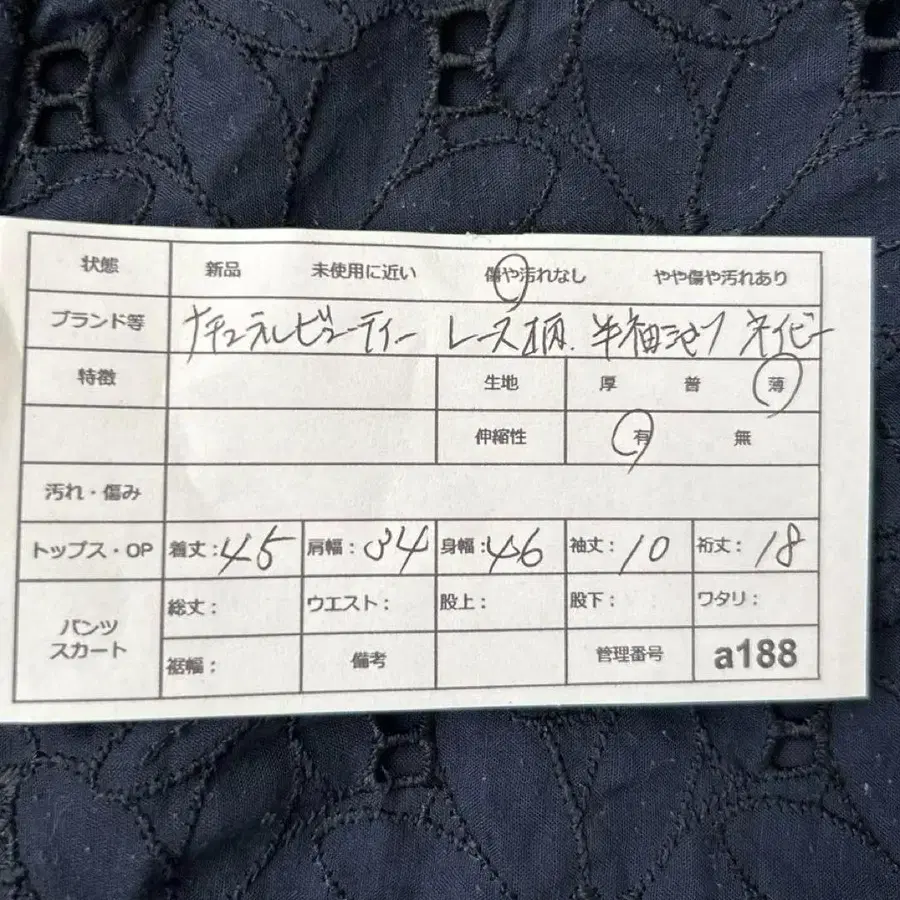 状態 新品 未使用に近い 傷や汚れなし やや傷や汚れあり
ブランド等 ナチュラルビューティー レース柄. 半袖シャツ ネイビー
特徴 生地 厚 普 薄
伸縮性 有 無
汚れ・傷み
トップス・OP 着丈:45 肩幅:34 身幅:46 袖丈:10 裄丈:18
パンツ スカート 総丈: ウエスト: 股上: 股下: ワタリ:
裾幅: 備考 管理番号 a188